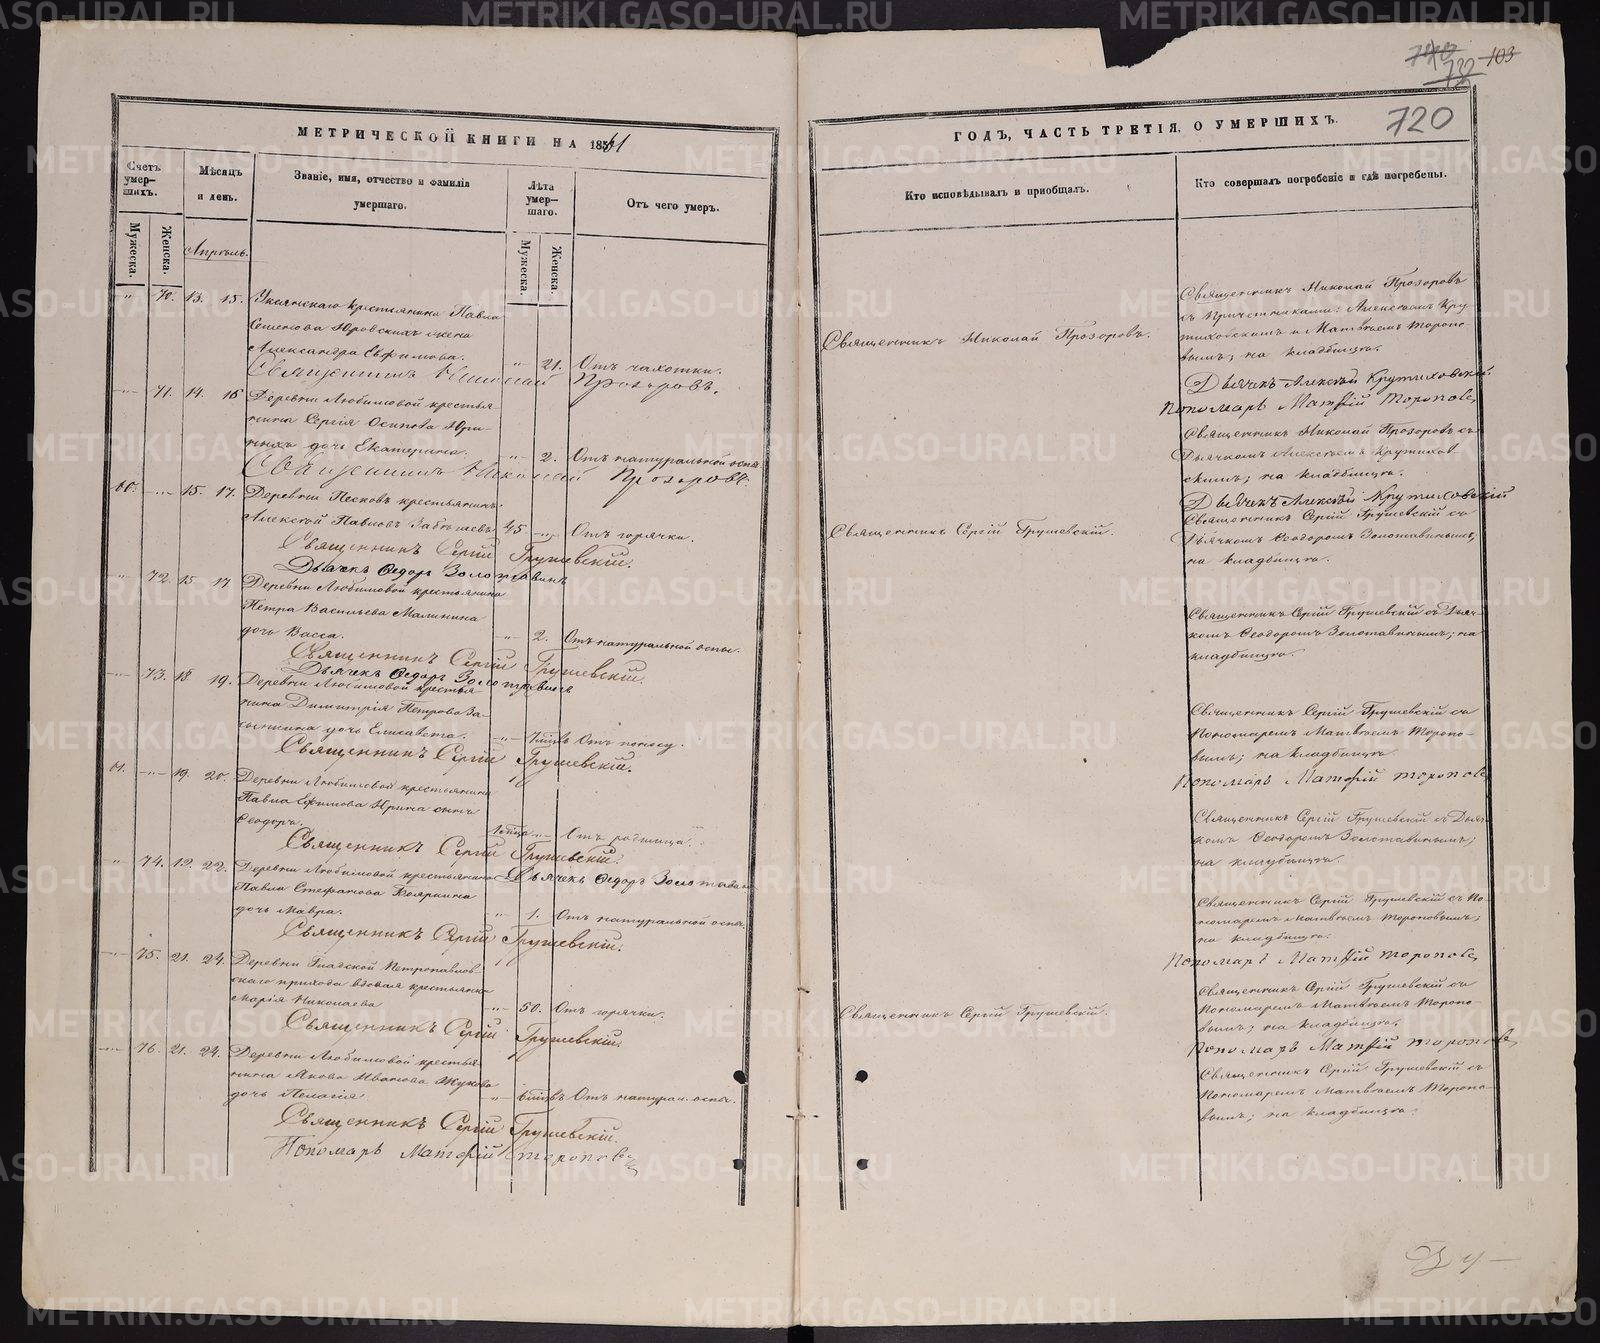 740
732
103
720
МЕТРИЧЕСКОЙ КНИГИ НА 1861
ГОДЪ, ЧАСТЬ ТРЕТІЯ, О УМЕРШИХЪ.
Счетъ умер-шихъ.
Мужеска.
Женска.
Мѣсяцъ и день.
Званіе, имя, отчество и фамилія умершаго.
Лѣта умер-шаго.
Мужеска.
Женска.
Отъ чего умеръ.
Кто исповѣдывалъ и пріобщалъ.
Кто совершалъ погребеніе и гдѣ погребены.
Апрѣль.
" 70. 13. 15.
крестьянина Павла
Семенова Юровскихъ жена
Александра Евфимова. " 21. Отъ чахотки.
Священникъ Николай Прозоровъ.
Священникъ Николай Прозоровъ.
Священникъ Николай Прозоровъ
съ Причетниками: Алексѣемъ Кру-
тиховскимъ и Матвѣемъ Торопо-
вымъ; на кладбищѣ.
Дьячекъ Алексѣй Крутиховскій.
Пономарь Матѳій Тороповъ
" 71. 14. 16
Деревни Любимовой крестья-
нина Сергія Осипова Юри-
ныхъ дочь Екатерина. " 2. Отъ натуральной оспы.
Священникъ Николай Прозоровъ.
Священникъ Николай Прозоровъ съ
Дьячкомъ Алексѣемъ Крутихов-
скимъ; на кладбищѣ.
Дьячекъ Алексѣй Крутиховскій
60. " 15. 17.
Деревни Песковъ крестьянинъ
Алексѣй Павловъ 45 " Отъ горячки.
Священникъ Сергій Грушевскій.
Дьячекъ Ѳедоръ Золотавинъ
Священникъ Сергій Грушевскій.
Священникъ Сергій Грушевскій съ
Дьячкомъ Ѳеодоромъ Золотавинымъ;
на кладбищѣ.
" 72. 15 17
Деревни Любимовой крестьянина
Петра Васильева Малинина
дочь Васса. " 2. Отъ натуральной оспы.
Священникъ Сергій Грушевскій.
Дьячекъ Ѳедоръ Золотавинъ
Священникъ Сергій Грушевскій съ Дьяч-
комъ Ѳеодоромъ Золотавинымъ; на
кладбищѣ.
" 73. 18 19.
Деревни Любимовой крестья-
нина Димитрія Петрова За-
дочь Елисавета. " Отъ поносу.
Священникъ Сергій Грушевскій.
Священникъ Сергій Грушевскій съ
Пономаремъ Матвѣемъ Торопо-
вымъ; на кладбищѣ
Пономарь Матѳій Тороповъ
61. " 19. 20.
Деревни Любимовой крестьянина
Павла Ефимова Юрина сынъ
Ѳеодоръ. " Отъ родимца.
Священникъ Сергій Грушевскій.
Дьячекъ Ѳедоръ Золотавинъ
Священникъ Сергій Грушевскій съ Дьяч-
комъ Ѳеодоромъ Золотавинымъ;
на кладбищѣ.
" 74. 12. 22.
Деревни Любимовой крестьянина
Павла Стефанова Бояркина
дочь Мавра. " 1. Отъ натуральной оспы.
Священникъ Сергій Грушевскій.
Священникъ Сергій Грушевскій съ По-
номаремъ Матвѣемъ Тороповымъ;
на кладбищѣ.
Пономарь Матѳій Тороповъ
" 75. 21. 24.
Деревни Петропавлов-
скаго прихода вдовая крестьянка
Марія Николаева " 50. Отъ горячки.
Священникъ Сергій Грушевскій.
Священникъ Сергій Грушевскій.
Священникъ Сергій Грушевскій съ
Пономаремъ Матвѣемъ Торопо-
вымъ; на кладбищѣ.
Пономарь Матѳій Тороповъ
" 76. 21. 24.
Деревни Любимовой крестья-
нина Якова Иванова Жукова
дочь Пелагія. " Отъ натурал. оспы.
Священникъ Сергій Грушевскій.
Пономарь Матѳій Тороповъ
Священникъ Сергій Грушевскій съ
Пономаремъ Матвѣемъ Торопо-
вымъ; на кладбищѣ.
METRIKI.GASO-URAL.RU